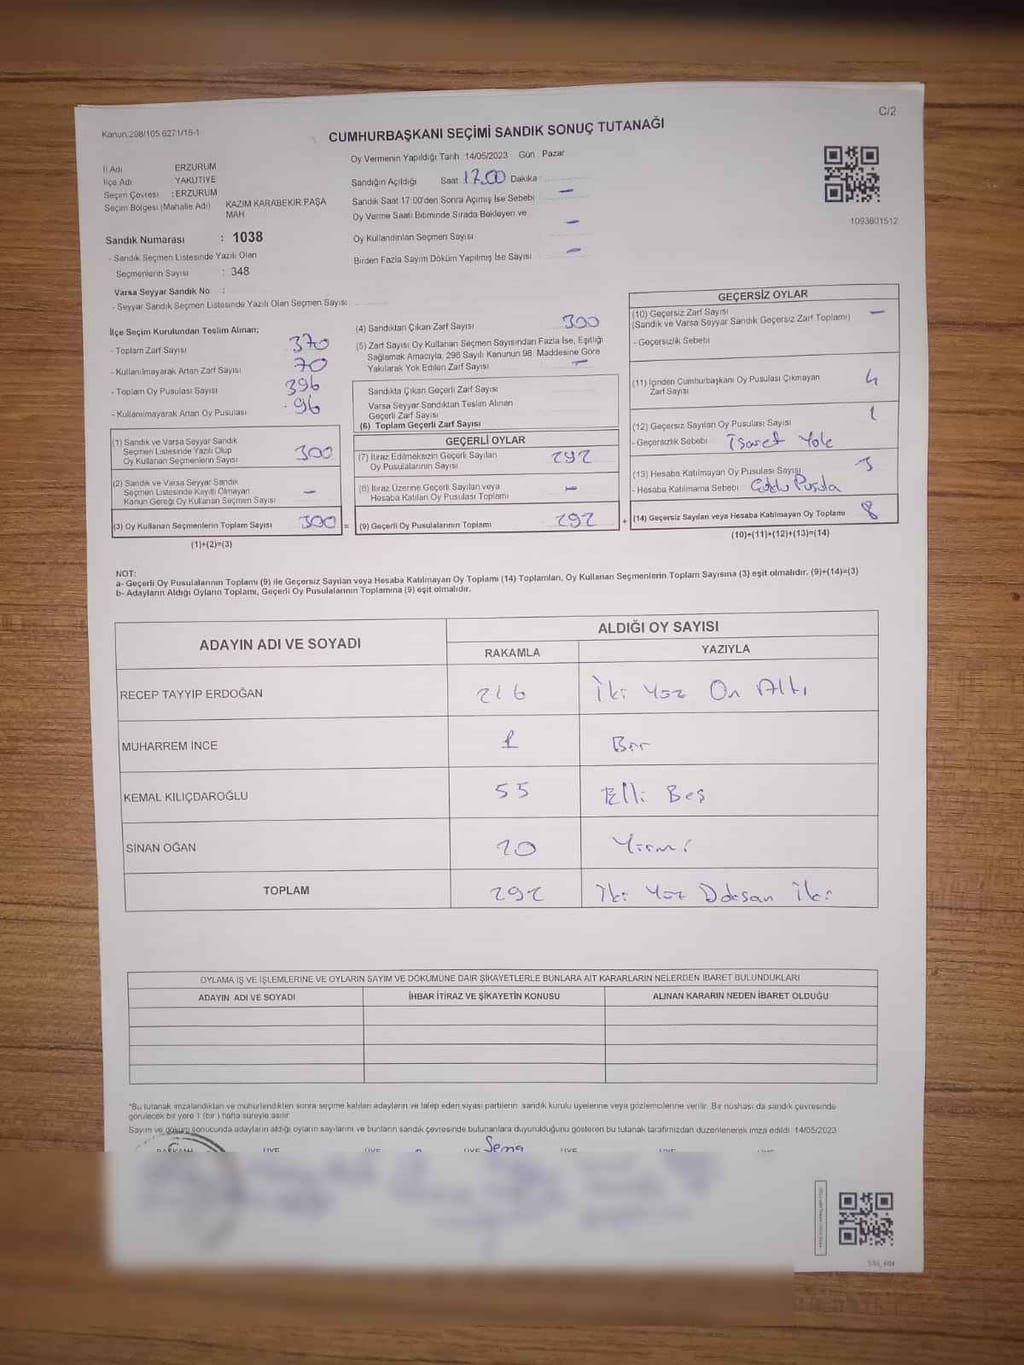 C/2
Kanun:298/105,6271/18-1
CUMHURBAŞKANI SEÇİMİ SANDIK SONUÇ TUTANAĞI
İl Adı ERZURUM
İlçe Adı YAKUTİYE
Seçim Çevresi : ERZURUM
Seçim Bölgesi (Mahalle Adı) KAZIM KARABEKİR PAŞA
MAH
Sandık Numarası : 1038
- Sandık Seçmen Listesinde Yazılı Olan
Seçmenlerin Sayısı : 348
Varsa Seyyar Sandık No :
- Seyyar Sandık Seçmen Listesinde Yazılı Olan Seçmen Sayısı
Oy Vermenin Yapıldığı Tarih 14/05/2023 Gün : Pazar
Sandığın Açıldığı Saat 17.00 Dakika
Sandık Saat 17:00'den Sonra Açılmış İse Sebebi -
Oy Verme Saati Bitiminde Sırada Bekleyen ve
Oy Kullandırılan Seçmen Sayısı -
Birden Fazla Sayım Döküm Yapılmış İse Sayısı -
1093801512
İlçe Seçim Kurulundan Teslim Alınan;
- Toplam Zarf Sayısı 370
- Kullanılmayarak Artan Zarf Sayısı 70
- Toplam Oy Pusulası Sayısı 396
- Kullanılmayarak Artan Oy Pusulası 96
(1) Sandık ve Varsa Seyyar Sandık
Seçmen Listesinde Yazılı Olup
Oy Kullanan Seçmenlerin Sayısı 300
(2) Sandık ve Varsa Seyyar Sandık
Seçmen Listesinde Kayıtlı Olmayan
Kanun Gereği Oy Kullanan Seçmen Sayısı -
(3) Oy Kullanan Seçmenlerin Toplam Sayısı 300 =
(1)+(2)=(3)
(4) Sandıktan Çıkan Zarf Sayısı 300
(5) Zarf Sayısı Oy Kullanan Seçmen Sayısından Fazla İse, Eşitliği
Sağlamak Amacıyla, 298 Sayılı Kanunun 98. Maddesine Göre
Yakılarak Yok Edilen Zarf Sayısı -
Sandıkta Çıkan Geçerli Zarf Sayısı
Varsa Seyyar Sandıktan Teslim Alınan
Geçerli Zarf Sayısı
(6) Toplam Geçerli Zarf Sayısı
GEÇERLİ OYLAR
(7) İtiraz Edilmeksizin Geçerli Sayılan
Oy Pusulalarının Sayısı 292
(8) İtiraz Üzerine Geçerli Sayılan veya
Hesaba Katılan Oy Pusulası Toplamı -
(9) Geçerli Oy Pusulalarının Toplamı 292 +
GEÇERSİZ OYLAR
(10) Geçersiz Zarf Sayısı
(Sandık ve Varsa Seyyar Sandık Geçersiz Zarf Toplamı) -
- Geçersizlik Sebebi
(11) İçinden Cumhurbaşkanı Oy Pusulası Çıkmayan
Zarf Sayısı 4
(12) Geçersiz Sayılan Oy Pusulası Sayısı 1
- Geçersizlik Sebebi İşaret Yok
(13) Hesaba Katılmayan Oy Pusulası Sayısı 3
- Hesaba Katılmama Sebebi Pusula
(14) Geçersiz Sayılan veya Hesaba Katılmayan Oy Toplamı 8
(10)+(11)+(12)+(13)=(14)
NOT:
a- Geçerli Oy Pusulalarının Toplamı (9) ile Geçersiz Sayılan veya Hesaba Katılmayan Oy Toplamı (14) Toplamları, Oy Kullanan Seçmenlerin Toplam Sayısına (3) eşit olmalıdır. (9)+(14)=(3)
b- Adayların Aldığı Oyların Toplamı, Geçerli Oy Pusulalarının Toplamına (9) eşit olmalıdır.
ADAYIN ADI VE SOYADI ALDIĞI OY SAYISI
RAKAMLA YAZIYLA
RECEP TAYYİP ERDOĞAN 216 İki Yüz On Altı
MUHARREM İNCE 1 Bir
KEMAL KILIÇDAROĞLU 55 Elli Beş
SİNAN OĞAN 20 Yirmi
TOPLAM 292 İki Yüz Doksan İki
OYLAMA İŞ VE İŞLEMLERİNE VE OYLARIN SAYIM VE DÖKÜMÜNE DAİR ŞİKAYETLERLE BUNLARA AİT KARARLARIN NELERDEN İBARET BULUNDUKLARI
ADAYIN ADI VE SOYADI İHBAR İTİRAZ VE ŞİKAYETİN KONUSU ALINAN KARARIN NEDEN İBARET OLDUĞU
*Bu tutanak imzalandıktan ve mühürlendikten sonra seçime katılan adayların ve talep eden siyasi partilerin sandık kurulu üyelerine veya gözlemcilerine verilir. Bir nüshası da sandık çevresinde
görülecek bir yere 1 (bir ) hafta süreyle asılır.
Sayım ve döküm sonucunda adayların aldığı oyların sayılarını ve bunların sandık çevresinde bulunanlara duyurulduğunu gösteren bu tutanak tarafımızdan düzenlenerek imza edildi. 14/05/2023
ÜYE ÜYE ÜYE Sema ÜYE ÜYE ÜYE